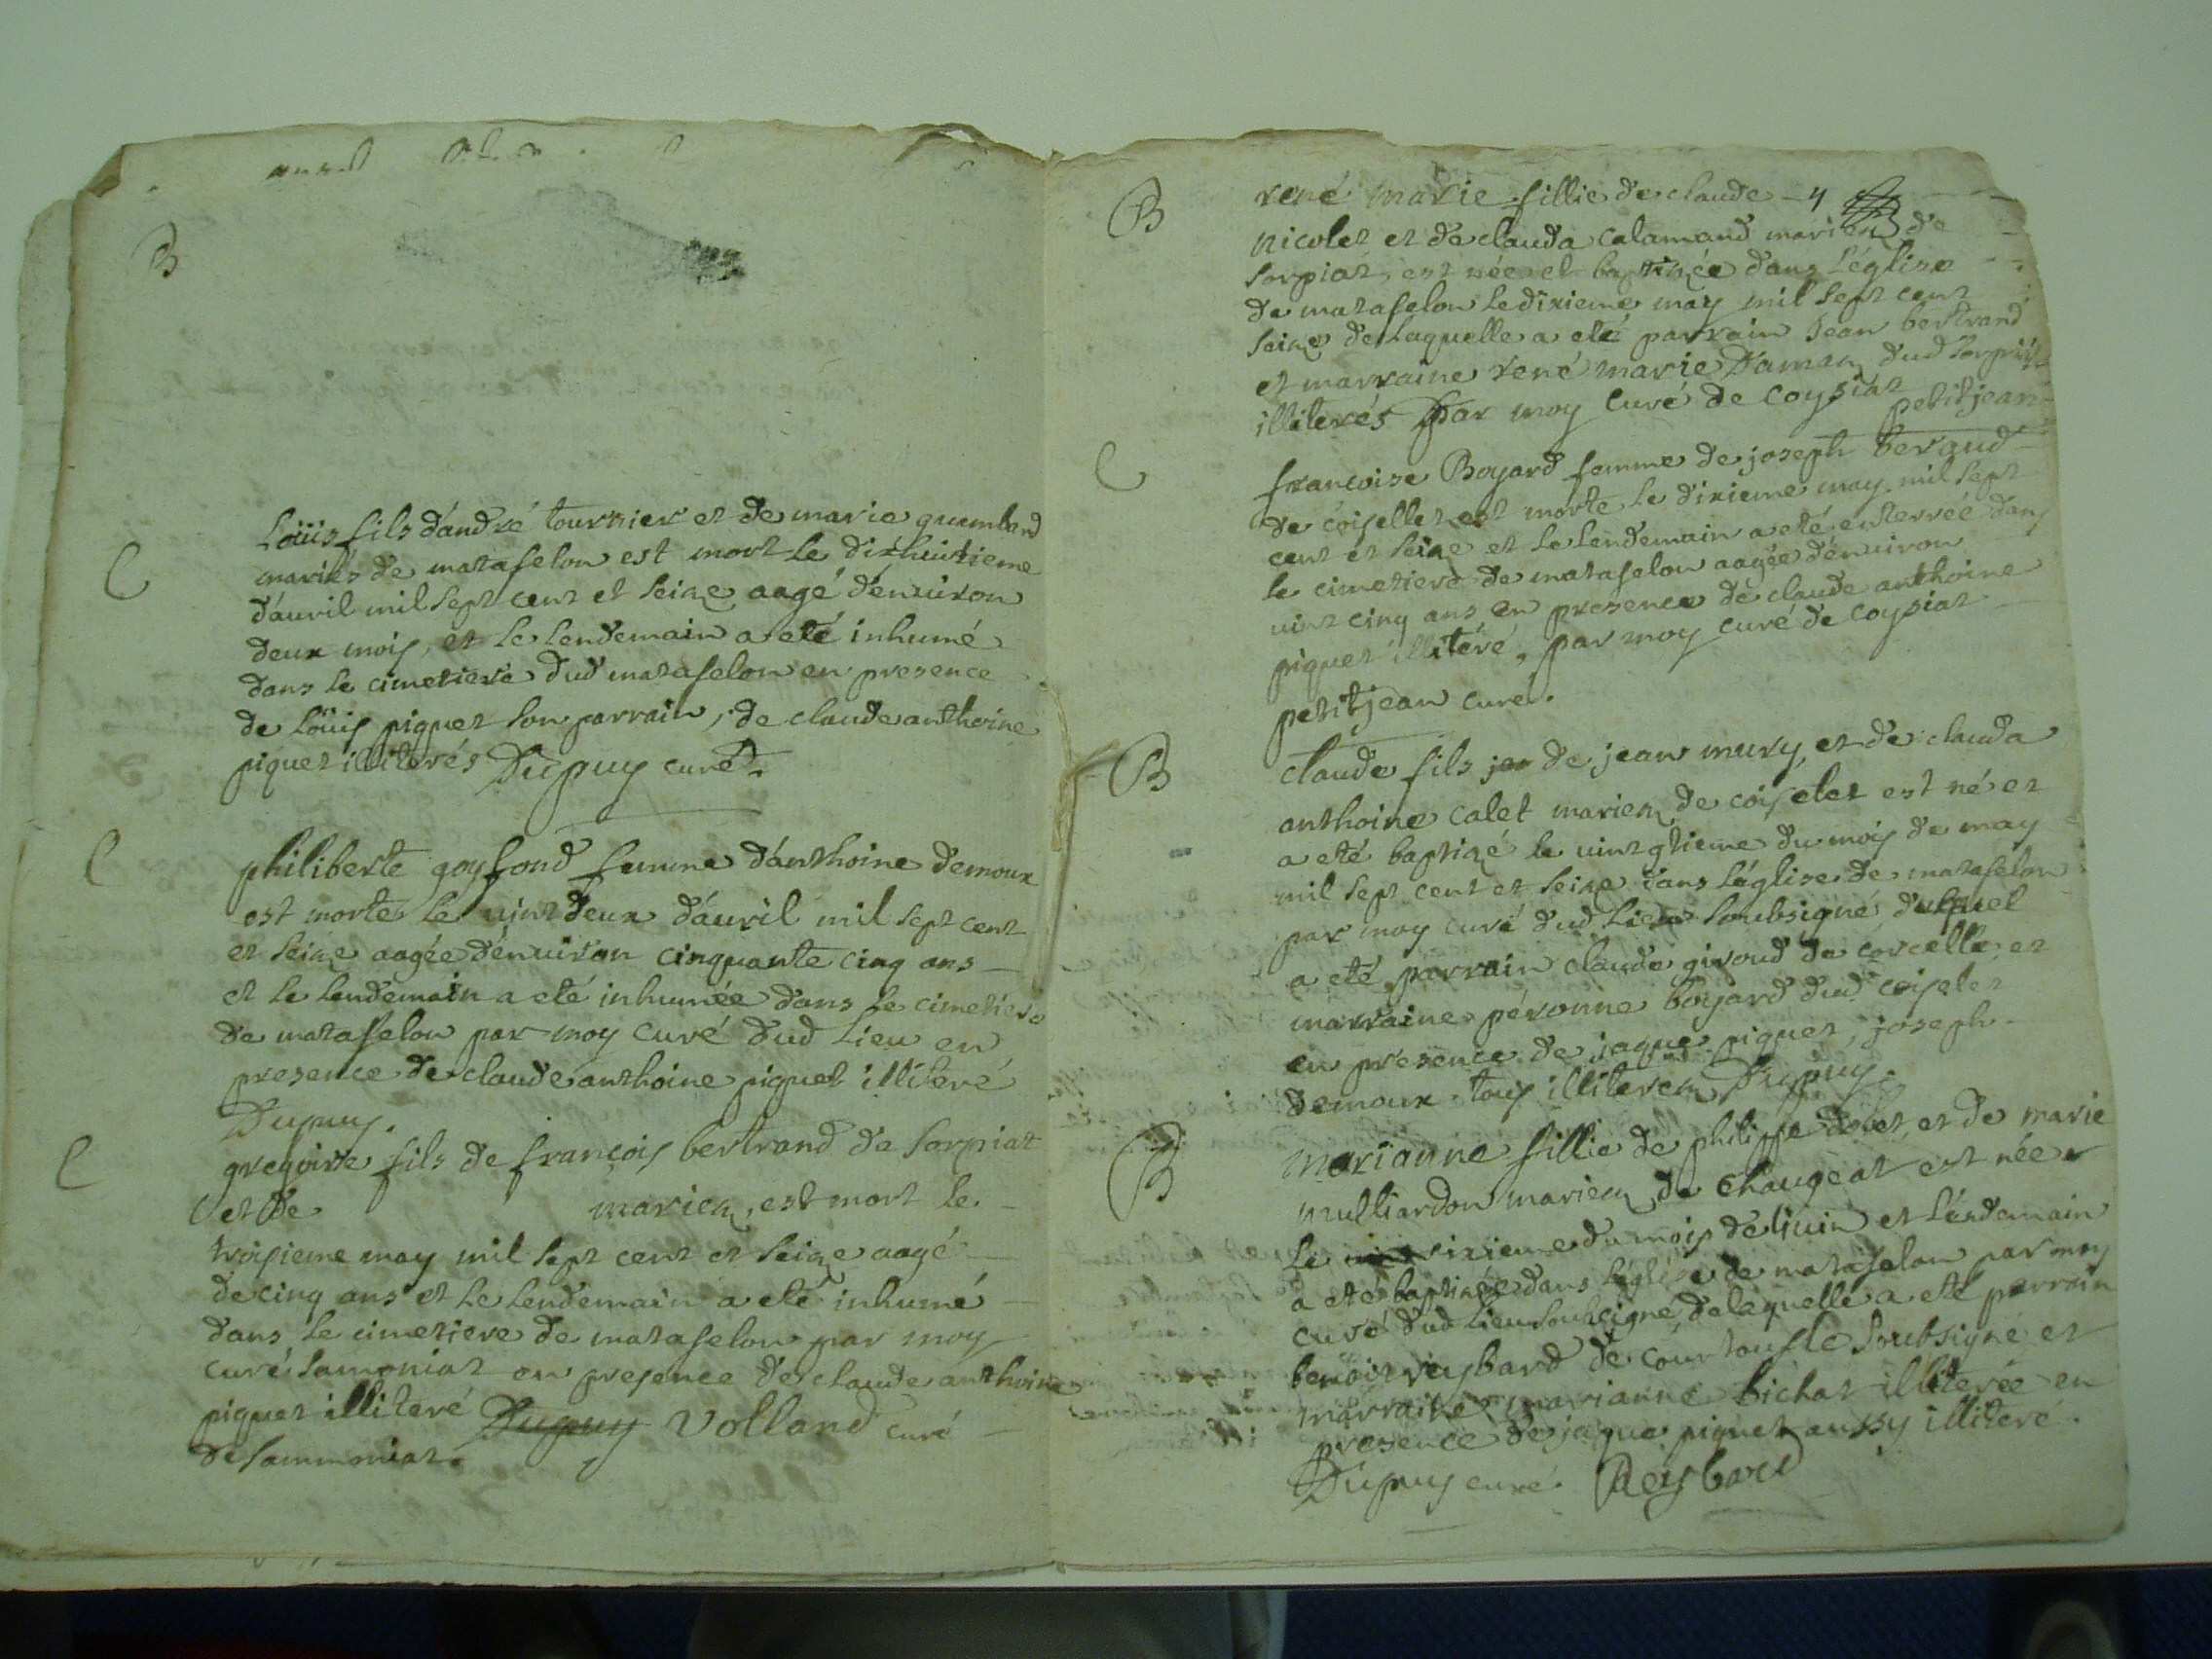 B
C
Loüis fils d'andré tournier et de marie
mariés de matafelon est mort le dixhuitieme
d'auril mil sept cent et seize aagé d'enuiron
deux mois, et le lendemain a eté inhumé
dans le cimetiere dud matafelon en presence
de Loüis piquet son parrain, de claude anthoine
piquet illiterés Dupuy curé.
C
philiberte goyffond femme d'anthoine demoux
est morte le vint deux d'auril mil sept cent
et seize aagée d'enuiron cinquante cinq ans
et le lendemain a eté inhumée dans le cimetiere
de matafelon par moy curé dud Lieu en
presence de claude anthoine piquet illiteré
Dupuy.
C
gregoire fils de françois bertrand de sorpiat
et de mariez, est mort le
troisieme may mil sept cent et seize aagé
de cinq ans et le lendemain a eté inhumé
dans le cimetiere de matafelon par moy
curé samoniat en presence de claude anthoine
piquet illiteré Dupuy Volland curé
de sammoniat.
B
rené marie fillie de claude
nicolet et de clauda calamand mariez de
sorpiat, est née et baptizée dans l'églize
de matafelon le dixieme may mil sept cent
seize de laquelle a eté parrain Jean bertrand
et marraine rené marie Damaz dud sorpiat
illiterés par moy curé de coysiat
petitjean
C
francoise Boyard femme de joseph beraud
de coiselet est morte le dixieme may mil sept
cent et seize et le lendemain a eté enterrée dans
le cimetiere de matafelon aagée d'enuiron
vint cinq ans en presence de claude anthoine
piquet illiteré, par moy curé de coysiat
petitjean curé.
B
claude fils de jean mury, et de clauda
anthoine calet mariez de coiselet est né et
a eté baptizé le vintgtieme du mois de may
mil sept cent et seize dans l'églize de matafelon
par moy curé dud Lieu soubsigné, duquel
a eté parrain claude giroud de corcelle, et
marraine péronne boyard dud coiselet
en presence de jaque piquet, joseph
demoux tous illiterez Dupuy.
B
marianne fillie de philippe et de marie
mulliardon mariez de changeat est née
Le sixieme du mois de iuin et l'endemain
a eté baptizée dans l'églize de matafelon par moy
curé dud Lieu soubsigné, de laquelle a eté parrain
benoit reybard de courtoufle soubsigné et
marraine marianne bichat illiterée en
presence de jaque piquet aussy illiteré.
Dupuy curé. Reybard